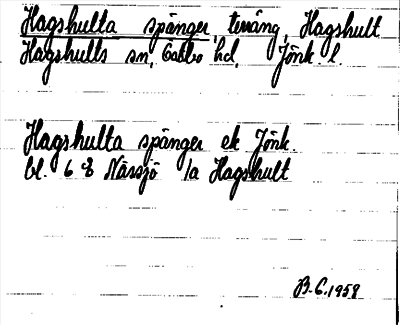 Hagshulta spånger, terräng, Hagshult
Hagshults sn, Östbo hd, Jönk. l.
Hagshulta spånger ek Jönk.
bl. 6 8 Nässjö 1a Hagshult
B.C. 1959